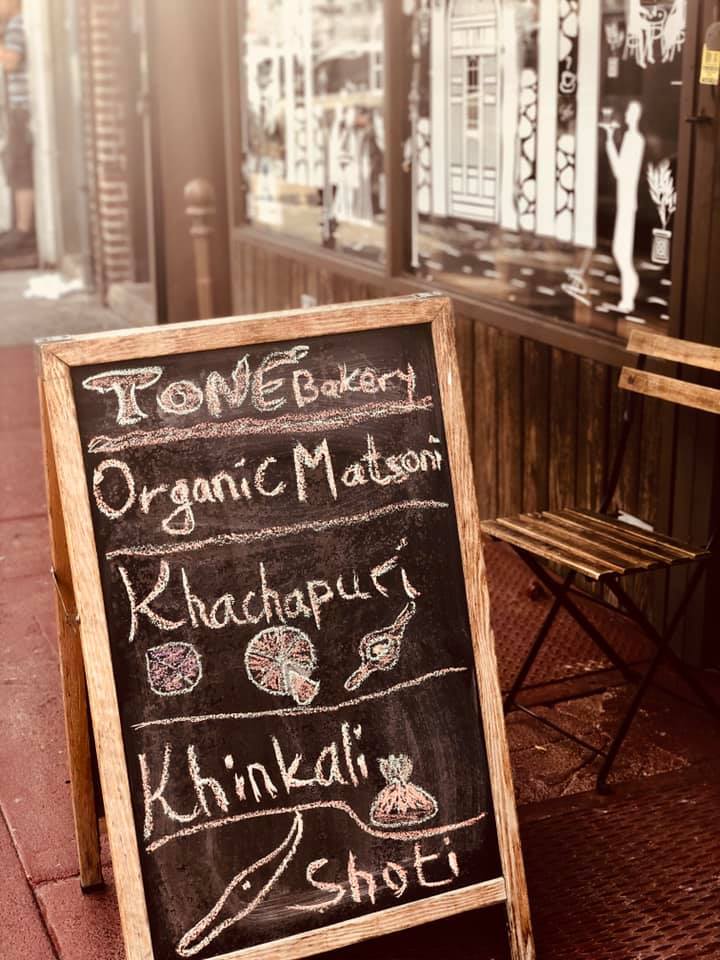 TONE Bakery
Organic Matsoni
Khachapuri
Khinkali
Shoti